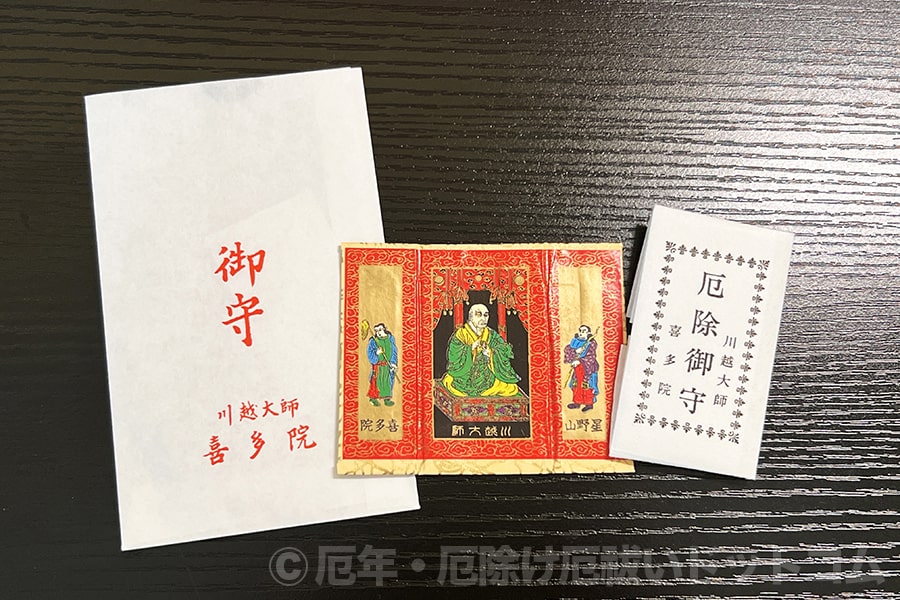 御守
川越大師
喜多院
星野山
川越大師
喜多院
川越大師
厄除御守
喜多院
©厄年・厄除け厄祓いドットコム